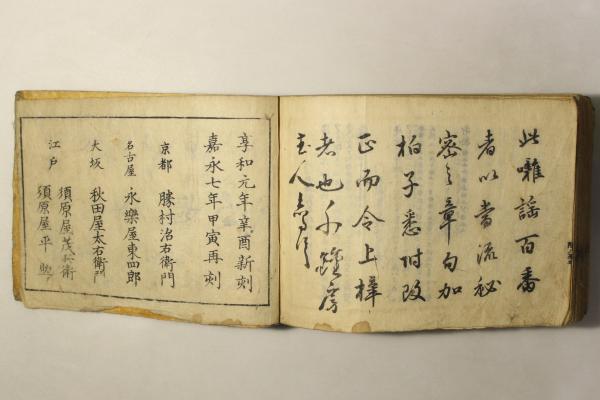 此囃謡百番
者以當流秘
密之章句加
拍子悉附改
正而令上梓
者也
主人
享和元年辛酉新刻
嘉永七年甲寅再刻
京都 勝村治右衛門
名古屋 永樂屋東四郎
大坂 秋田屋太右衛門
江戸 須原屋茂兵衛
須原屋平